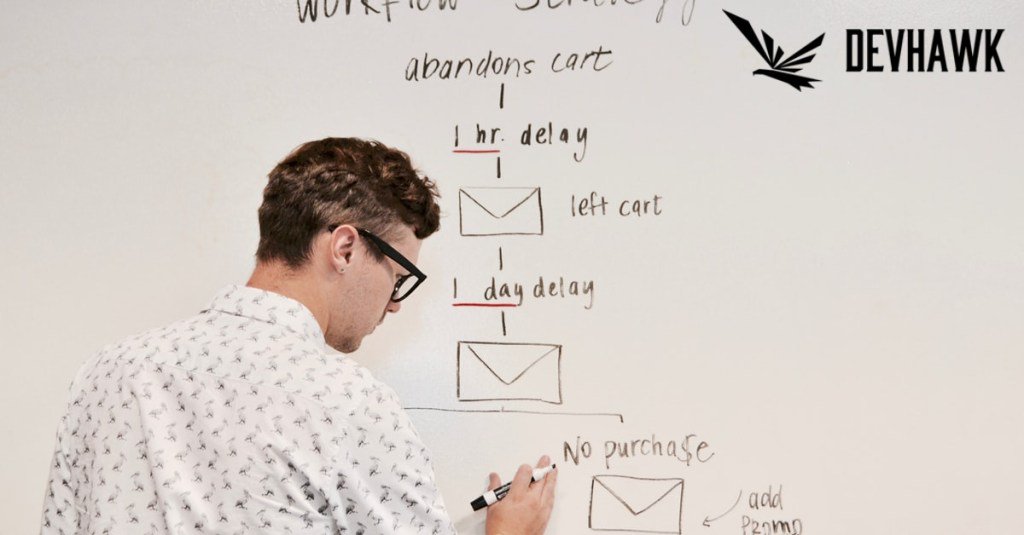 Workflow Strategy
DEVHAWK
abandons cart
1 hr. delay
left cart
1 day delay
No purcha$e
add
promo